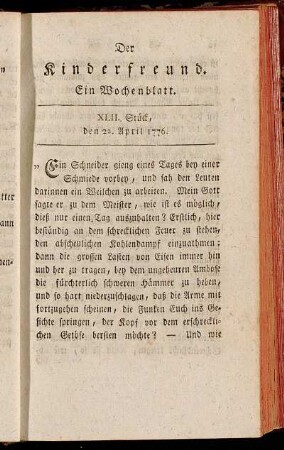 Der
Kinderfreund.
Ein Wochenblatt.
XLII. Stück,
den 22. April 1776.
„ Ein Schneider gieng eines Tages bey einer
Schmiede vorbey, und sah den Leuten
darinnen ein Weilchen zu arbeiten. Mein Gott
sagte er zu dem Meister, wie ist es möglich,
dieß nur einen Tag auszuhalten? Erstlich, hier
beständig an dem schrecklichen Feuer zu stehen,
den abscheulichen Kohlendampf einzuathmen:
dann die großen Lasten von Eisen immer hin
und her zu tragen, bey dem ungeheuren Ambose
die fürchterlich schweren Hämmer zu heben,
und so hart niederzuschlagen, daß die Arme mit
fortzugehen scheinen, die Funken Euch ins Ge-
sichte springen, der Kopf vor dem erschreckli-
chen Getöse bersten möchte? — Und wie